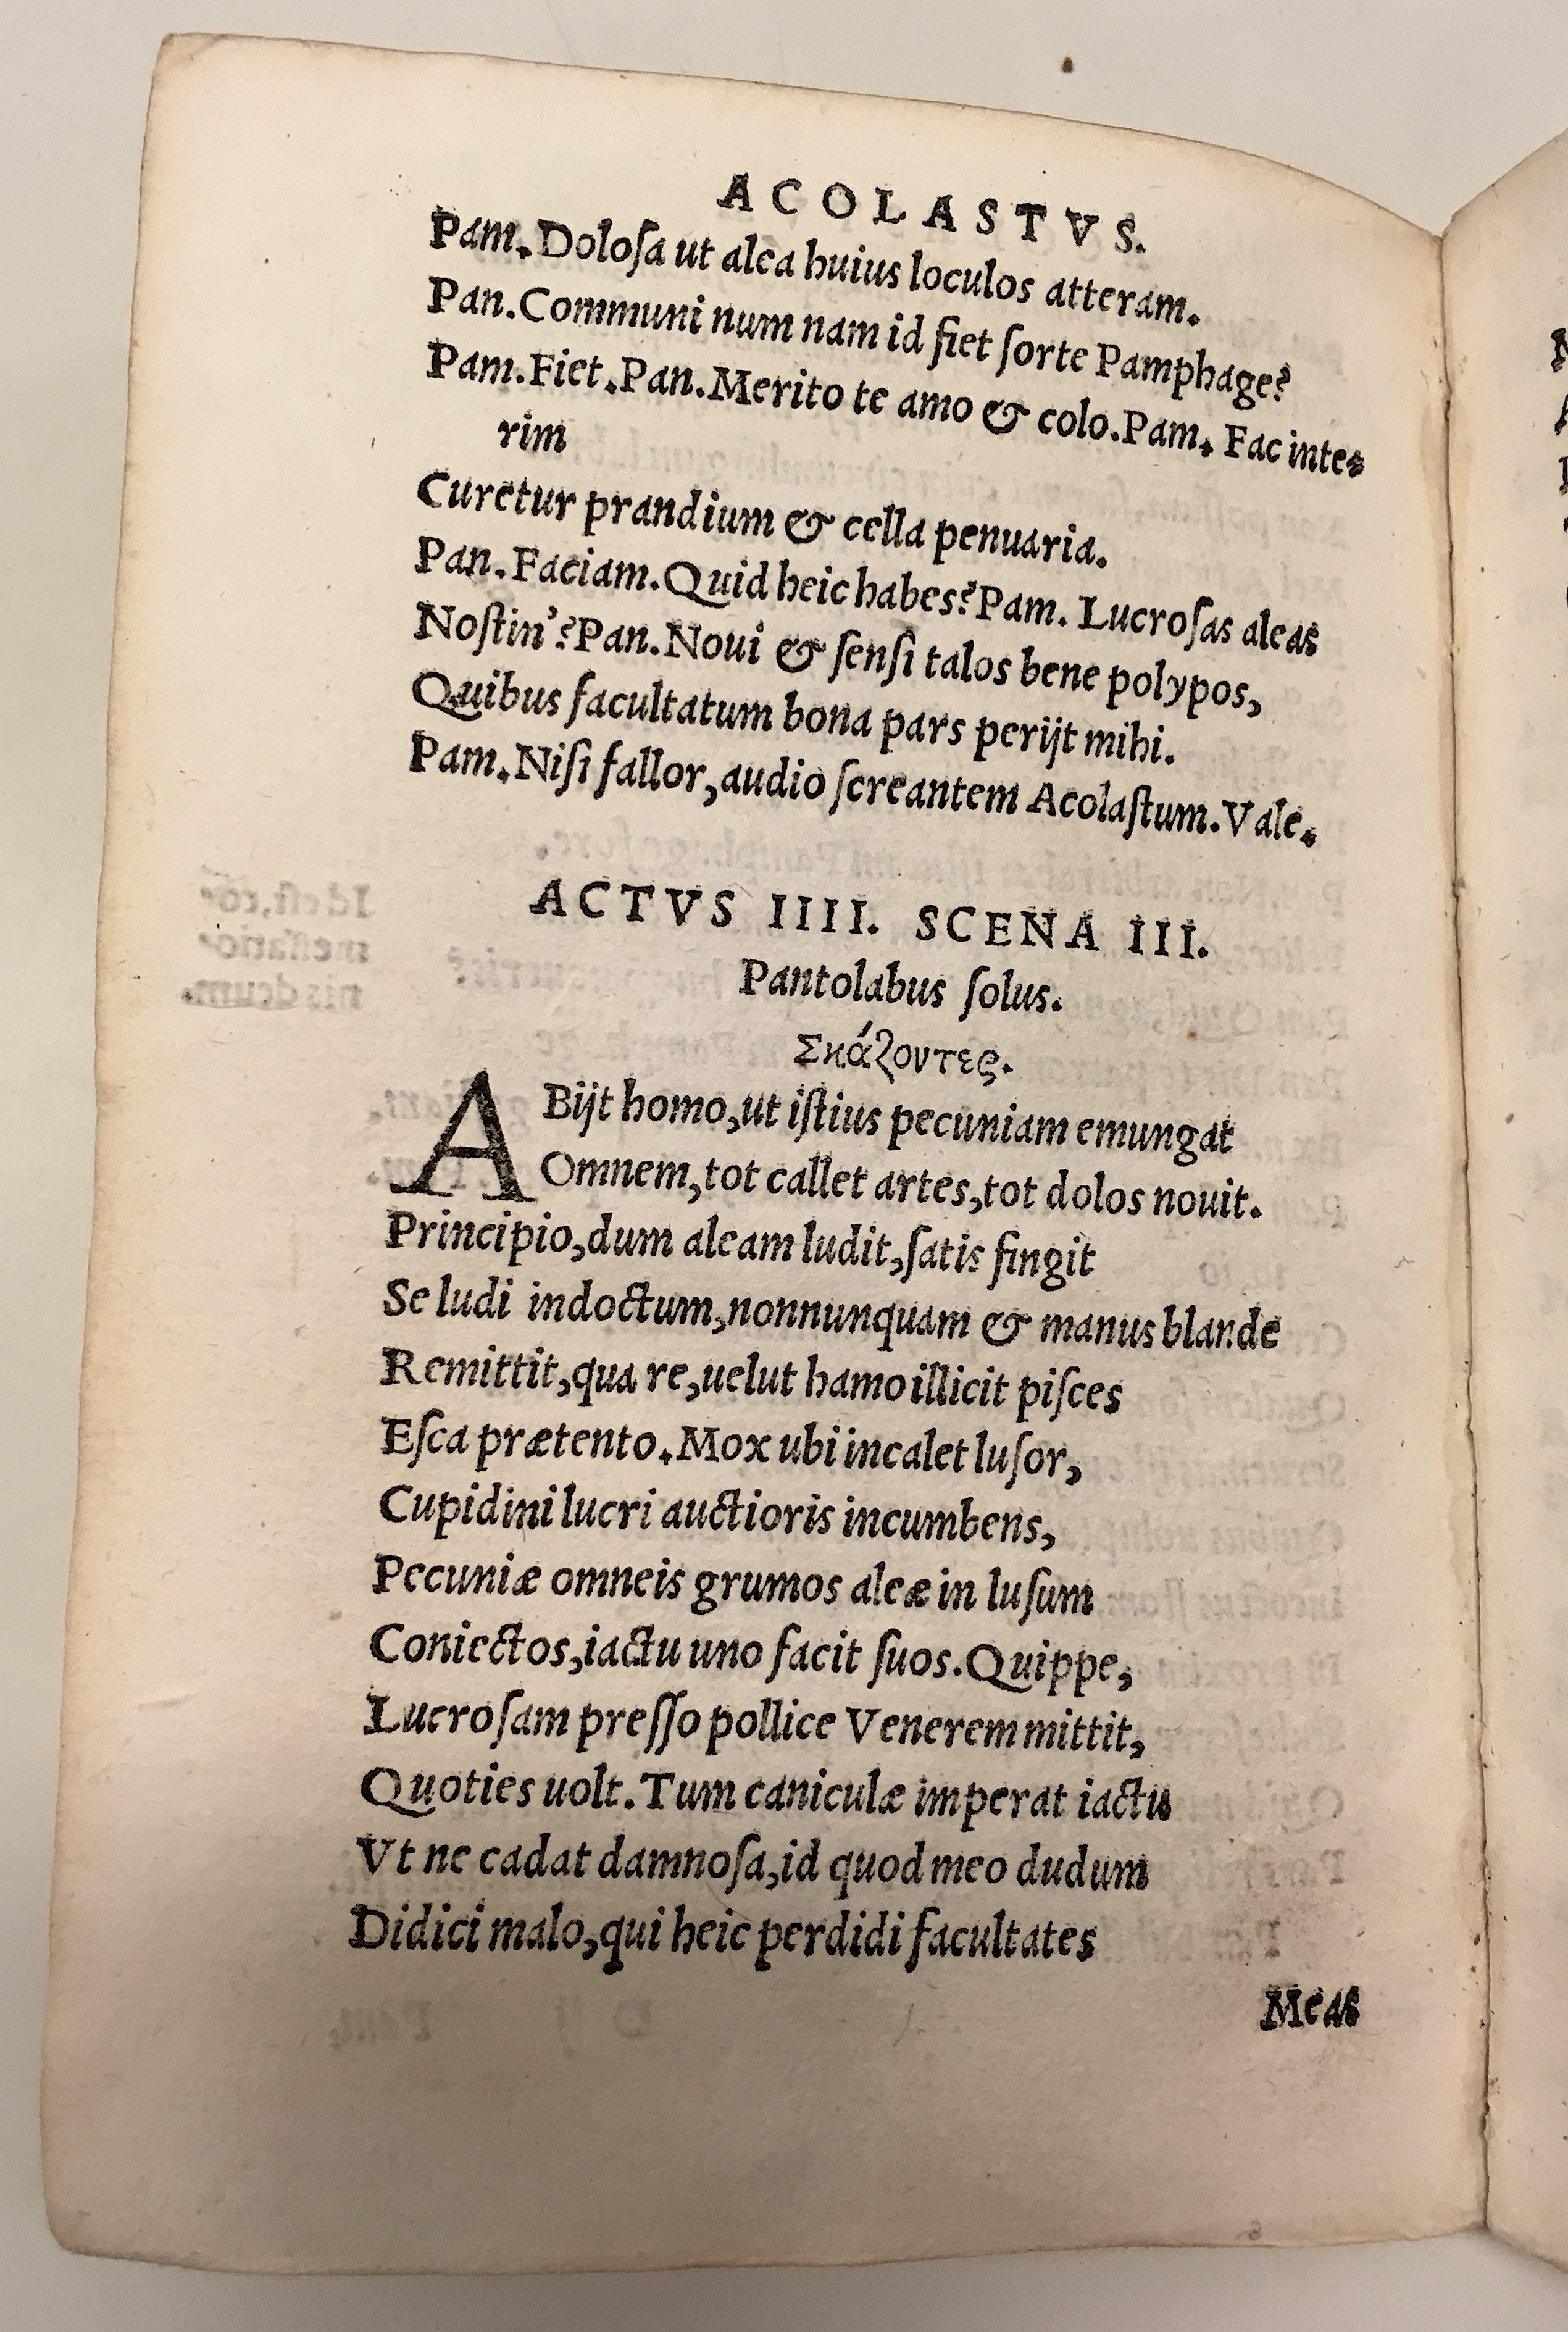 ACOLASTVS.
Pam. Doloſa ut alea huius loculos atteram.
Pan. Communi num nam id fiet ſorte Pamphage?
Pam. Fiet. Pan. Merito te amo & colo. Pam. Fac inte-
rim
Curetur prandium & cella penuaria.
Pan. Faciam. Quid heic habes? Pam. Lucroſas aleas
Noſtin'? Pan. Noui & ſenſi talos bene polypos,
Quibus facultatum bona pars perijt mihi.
Pam. Niſi fallor, audio ſcreantem Acolaſtum. Vale.
ACTVS IIII. SCENA III.
Pantolabus ſolus.
Σκάζοντες.
ABijt homo, ut iſtius pecuniam emungat
Omnem, tot callet artes, tot dolos nouit.
Principio, dum aleam ludit, ſatis fingit
Se ludi indoctum, nonnunquam & manus blande
Remittit, qua re, uelut hamo illicit piſces
Eſca prætento. Mox ubi incalet luſor,
Cupidini lucri auctioris incumbens,
Pecuniæ omneis grumos aleæ in luſum
Coniectos, iactu uno facit ſuos. Quippe,
Lucroſam preſſo pollice Venerem mittit,
Quoties uolt. Tum caniculæ imperat iactu
Vt ne cadat damnoſa, id quod meo dudum
Didici malo, qui heic perdidi facultates
Meas